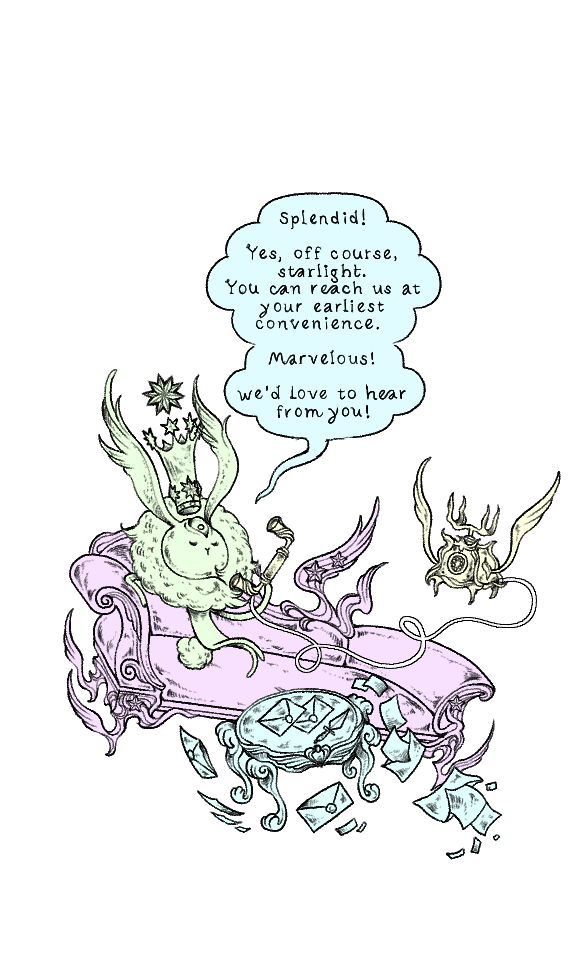 Splendid!
Yes, off course,
starlight.
You can reach us at
your earliest
convenience.
Marvelous!
we'd love to hear
from you!